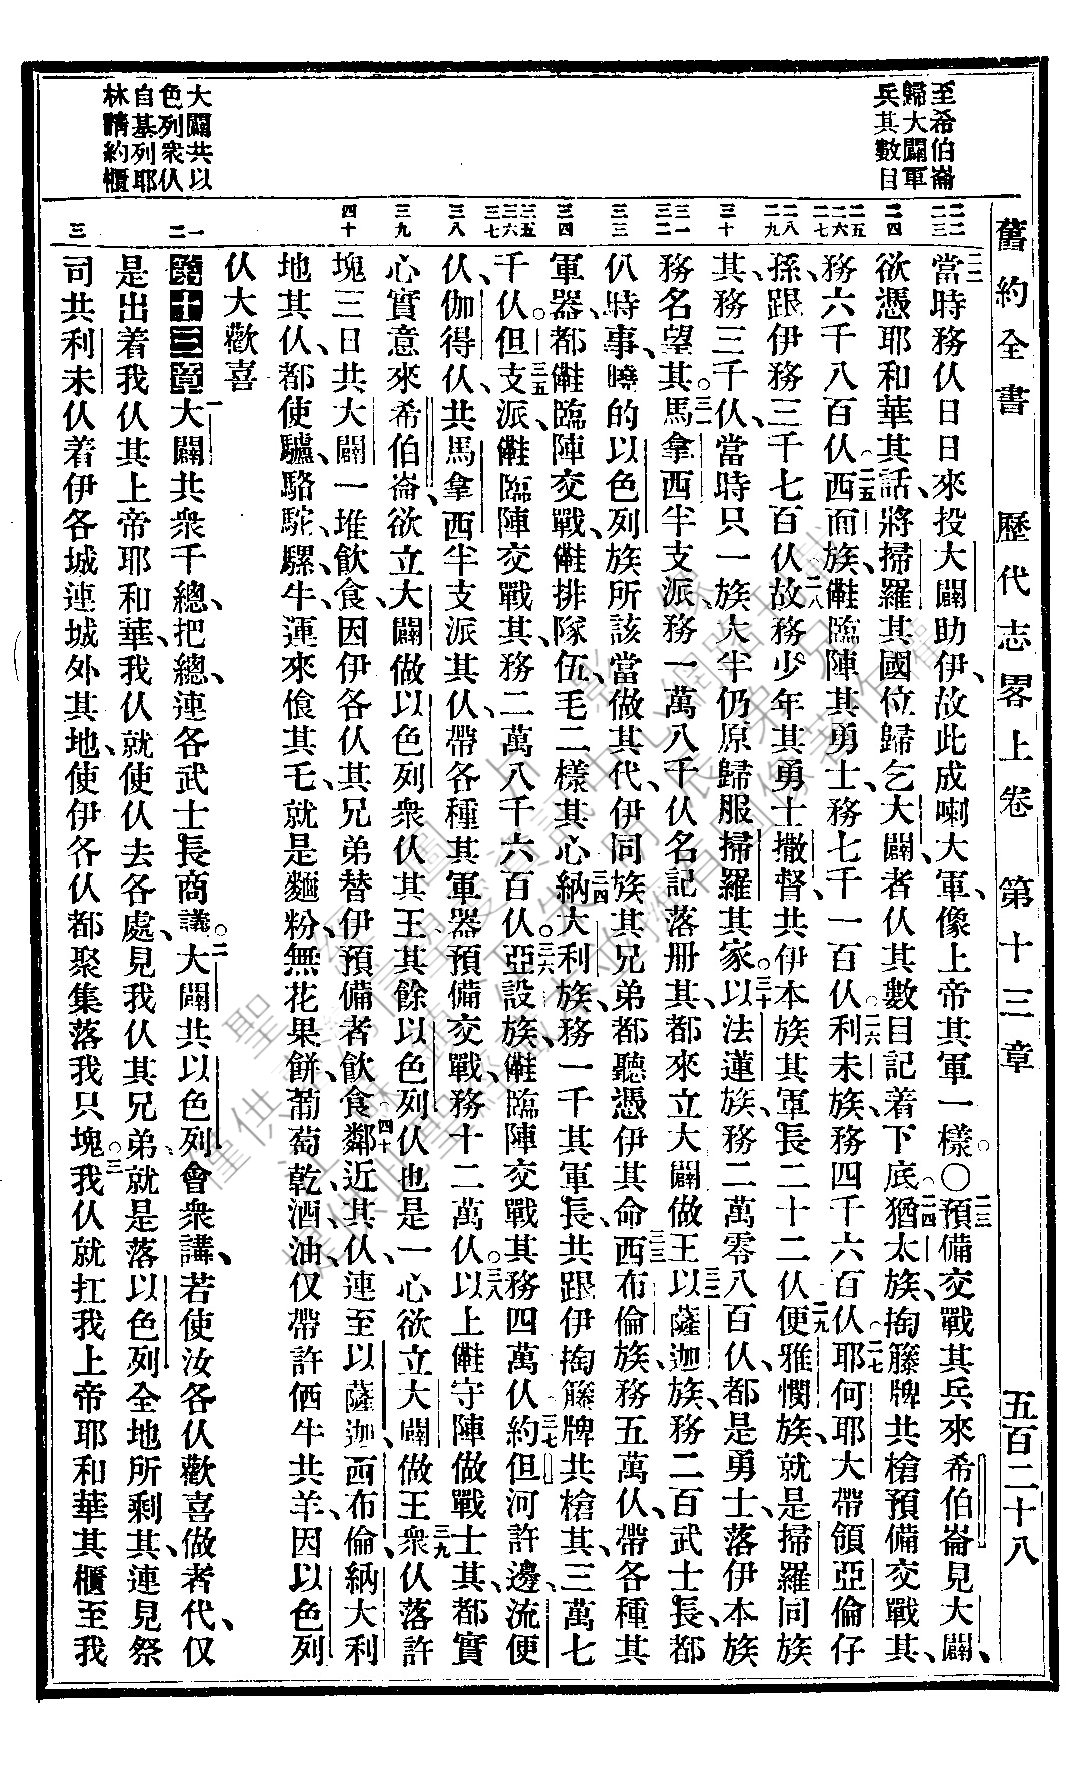 舊約全書　歷代志畧上卷　第十三章　五百二十八
至希伯崙
歸大闢軍
兵其數目
大闢共以
色列衆仈
自基列耶
林請約櫃
二二
二三
二四
二五
二六
二七
二八
二九
三十
三一
三二
三三
三四
三五
三六
三七
三八
三九
四十
一
二
三
當時務仈日日來投大闢助伊故此成喇大軍像上帝其軍一樣○預備交戰其兵來希伯崙見大闢
欲憑耶和華其話將掃羅其國位歸乞大闢者仈其數目記着下底猶太族掏籐牌共槍預備交戰其
務六千八百仈西面族㒰臨陣其勇士務七千一百仈利未族務四千六百仈耶何耶大帶領亞倫仔
孫跟伊務三千七百仈故務少年其勇士撒督共伊本族其軍長二十二仈便雅憫族就是掃羅同族
其務三千仈當時只一族大半仍原歸服掃羅其家以法蓮族務二萬零八百仈都是勇士落伊本族
務名望其馬拿西半支派務一萬八千仈名記落册其都來立大闢做王以薩迦族務二百武士長都
仈時事曉的以色列族所該當做其代伊同族其兄弟都聽憑伊其命西布倫族務五萬仈帶各種其
軍器都㒰臨陣交戰㒰排隊伍毛二樣其心納大利族務一千其軍長共跟伊掏籐牌共槍其三萬七
千仈但支派㒰臨陣交戰其務二萬八千六百仈亞設族㒰臨陣交戰其務四萬仈約但河許邊流便
仈伽得仈共馬拿西半支派其仈帶各種其軍器預備交戰務十二萬仈以上㒰守陣做戰士其都實
心實意來希伯崙欲立大闢做以色列衆仈其王其餘以色列仈也是一心欲立大闢做王衆仈落許
塊三日共大闢一堆飲食因伊各仈其兄弟替伊預備者飲食鄰近其仈連至以薩迦西布倫納大利
地其仈都使驢駱駝騾牛運來飡其乇就是麵粉無花果餅葡萄乾酒油仅帶許価牛共羊因以色列
仈大歡喜
第十三章大闢共衆千總把總連各武士長商議大闢共以色列會衆講若使汝各仈歡喜做者代仅
是出着我仈其上帝耶和華我仈就使仈去各處見我仈其兄弟就是落以色列全地所剩其連見祭
司共利未仈着伊各城連城外其地使伊各仈都聚集落我只塊我仈就扛我上帝耶和華其櫃至我